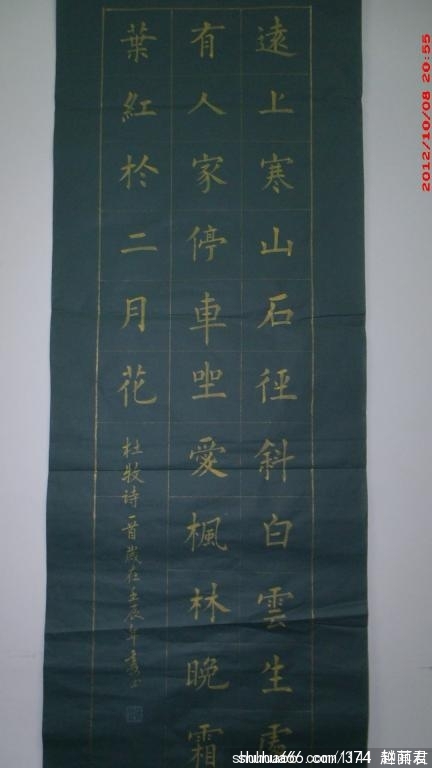 遠上寒山石徑斜白雲生處
有人家停車坐愛楓林晚霜
葉紅於二月花
杜牧诗一首歲在壬辰年書
2012/10/08 20:55